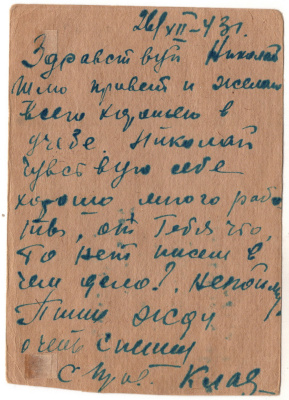 26/XII-43г.
Здравствуй Николай
Шлю привет и желаю
всего хорошего в
учебе. Николай
чувствую себе
хорошо много рабо
ты, от Тебя что,
то нет писем в
чем дело? непойму.
Пиши жду
очень спешу
с прив. Клав.